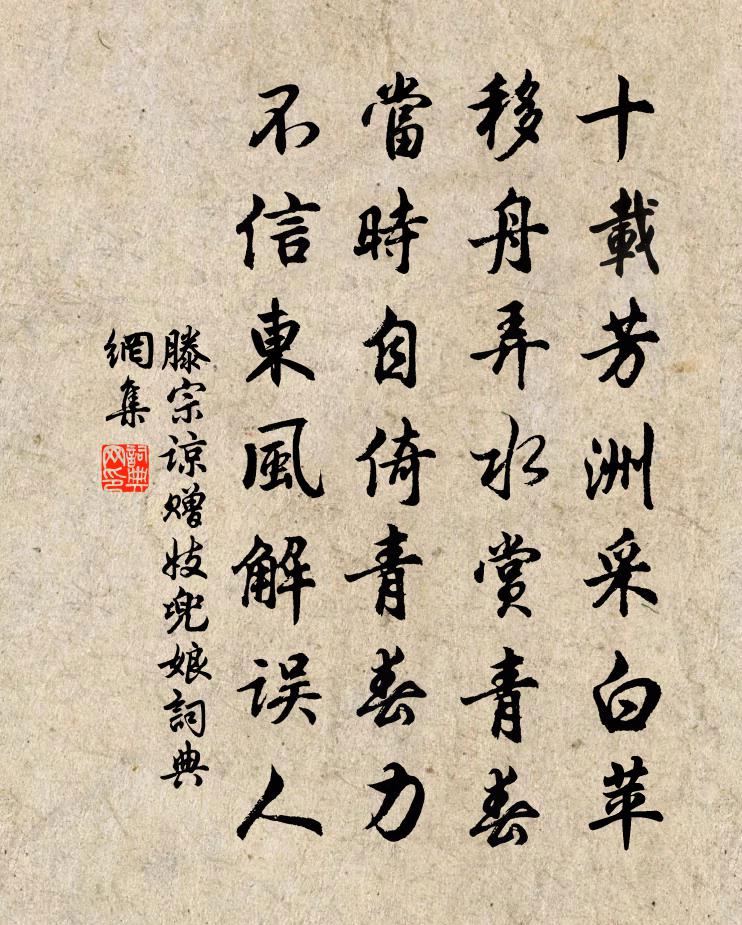 十載芳洲采白苹
移舟弄水賞青春
當時自倚青春力
不信東風解误人
滕宗諒赠妓兜娘詞典
網集
詞典
网印